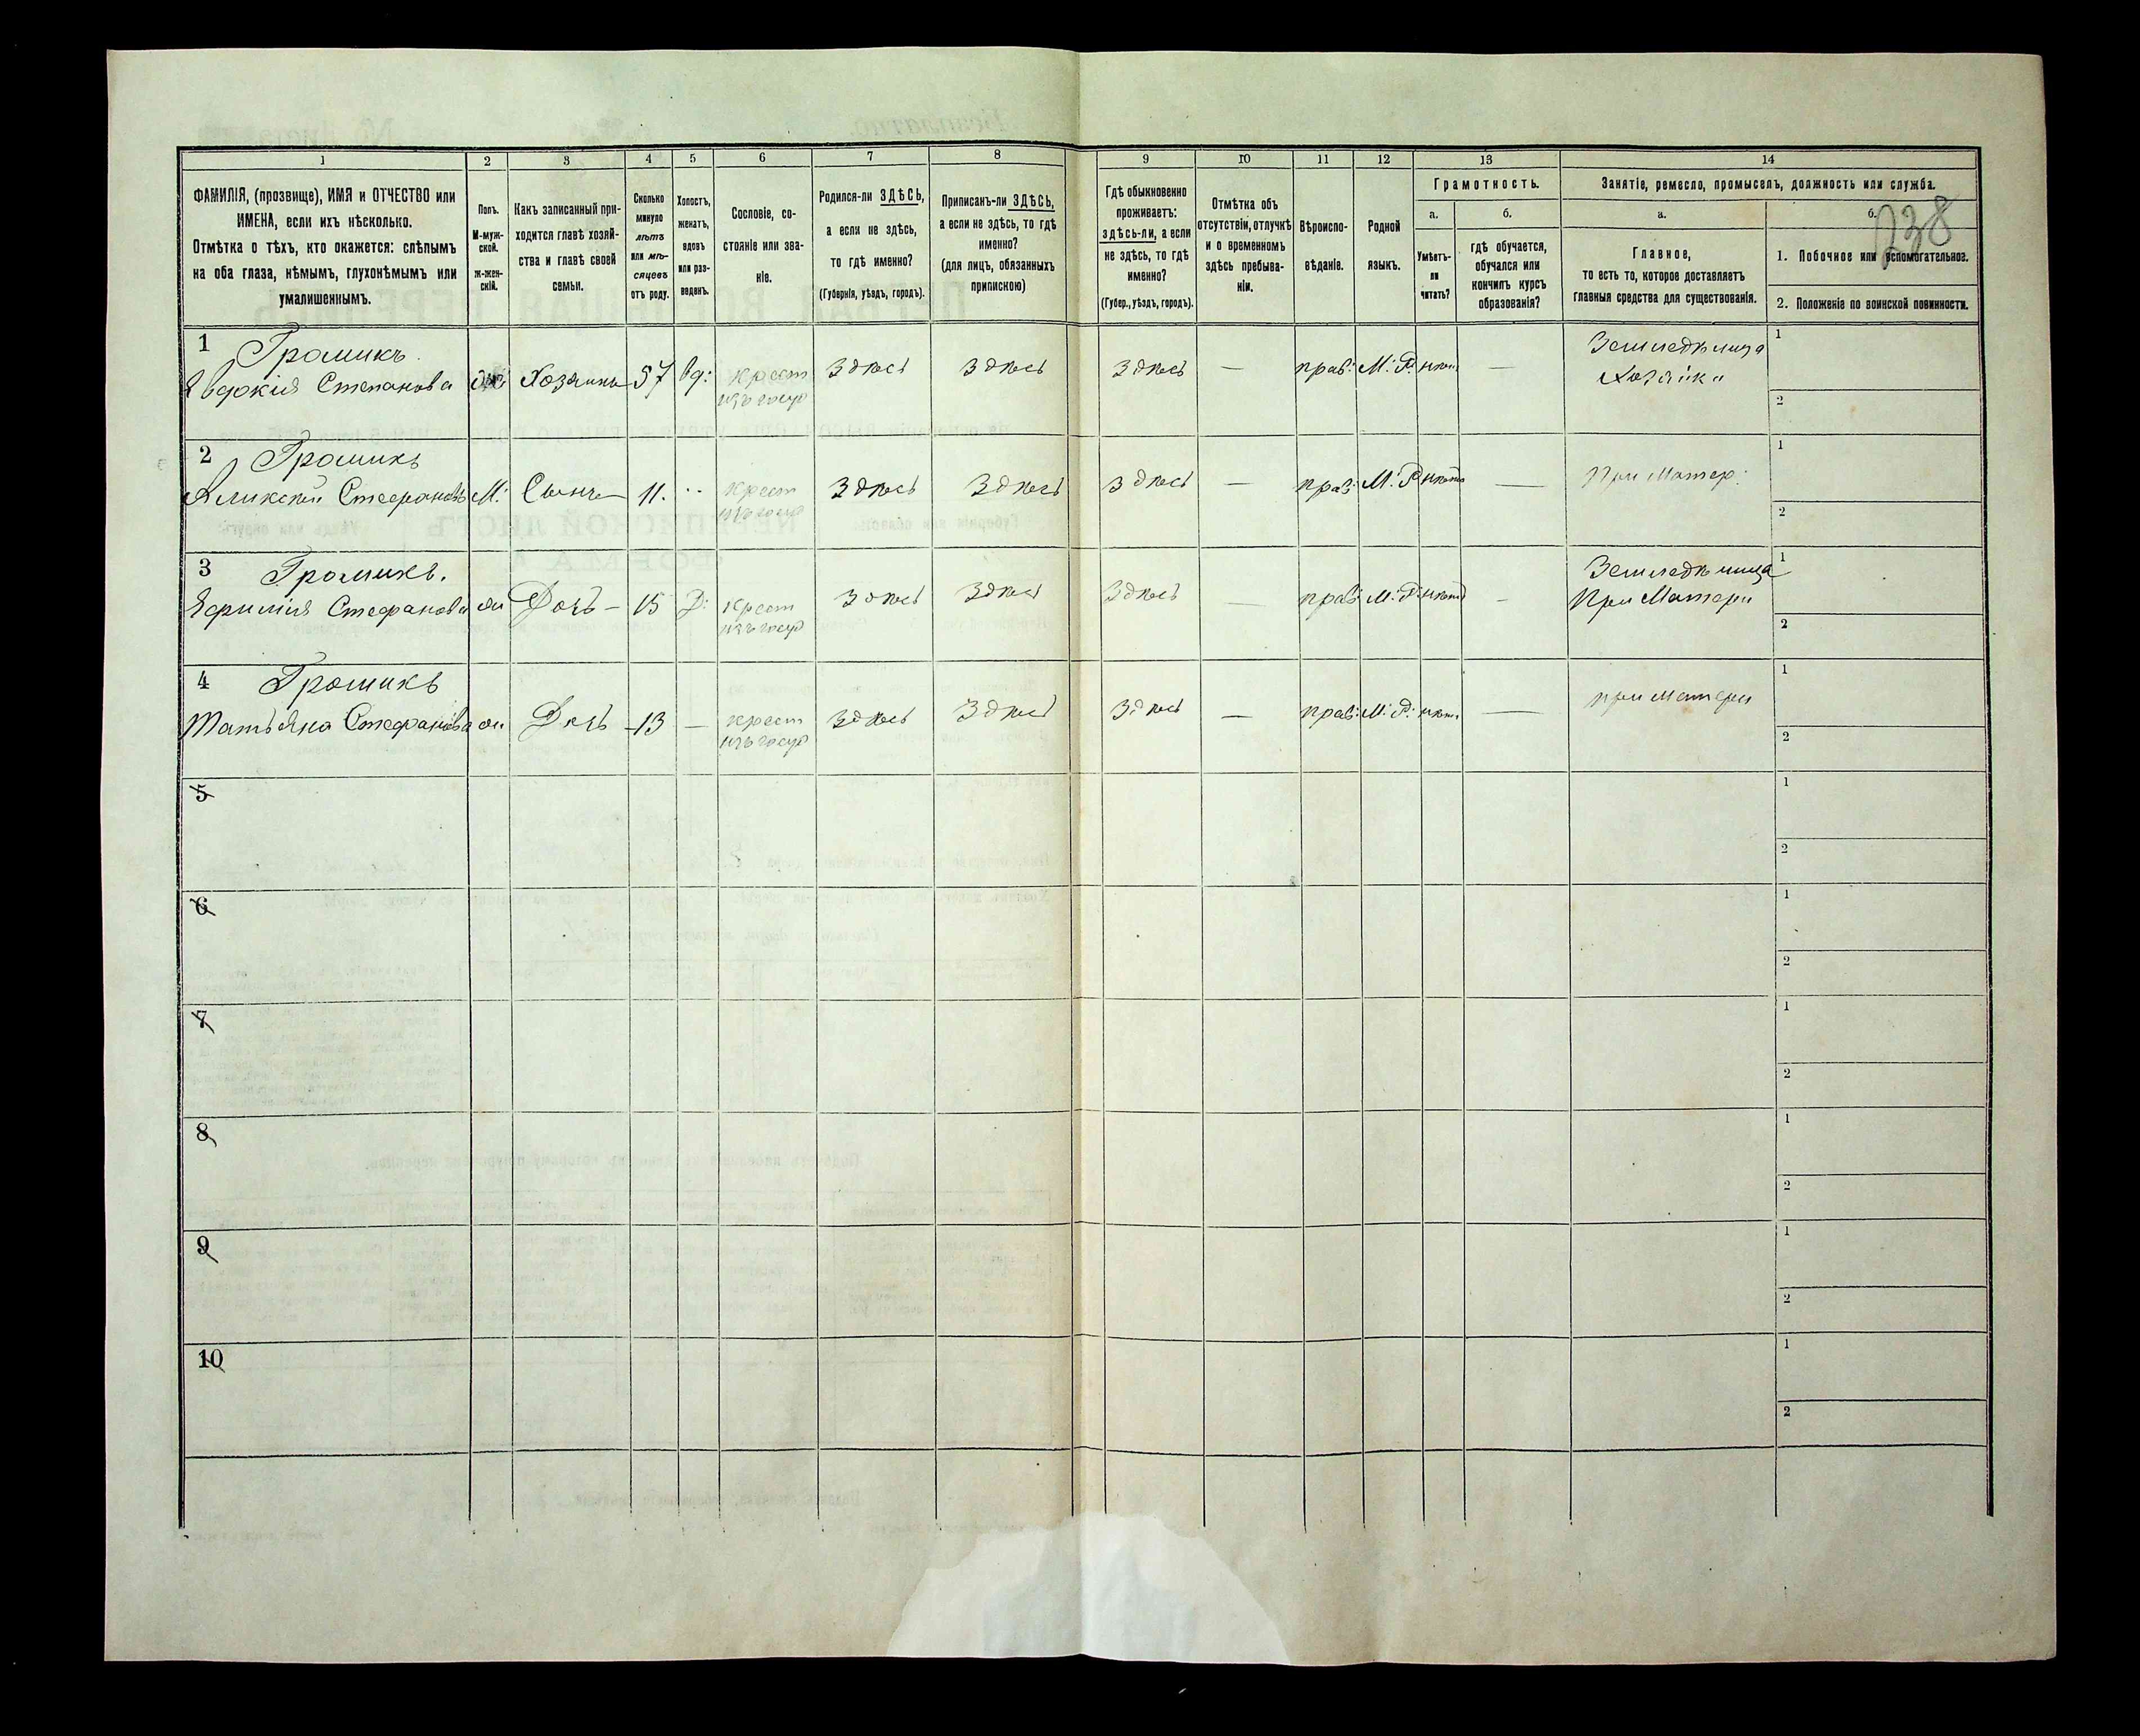 1 2 3 4 5 6 7 8 9 10 11 12 13 14
ФАМИЛІЯ, (прозвище), ИМЯ и ОТЧЕСТВО или
ИМЕНА, если ихъ нѣсколько.
Отмѣтка о тѣхъ, кто окажется: слѣпымъ
на оба глаза, нѣмымъ, глухонѣмымъ или
умалишеннымъ.
Полъ.
М-муж-
ской.
Ж-жен-
скій.
Какъ записанный при-
ходится главѣ хозяй-
ства и главѣ своей
семьи.
Сколько
минуло
лѣтъ
или мѣ-
сяцевъ
отъ роду.
Холостъ,
женатъ,
вдовъ
или раз-
веденъ.
Сословіе, со-
стояніе или зва-
ніе.
Родился-ли ЗДѢСЬ,
а если не здѣсь,
то гдѣ именно?
(Губернія, уѣздъ, городъ).
Приписанъ-ли ЗДѢСЬ,
а если не здѣсь, то гдѣ
именно?
(для лицъ, обязанныхъ
припискою)
Гдѣ обыкновенно
проживаетъ:
здѣсь-ли, а если
не здѣсь, то гдѣ
именно?
(Губер., уѣздъ, городъ).
Отмѣтка объ
отсутствіи, отлучкѣ
и о временномъ
здѣсь пребыва-
ніи.
Вѣроиспо-
вѣданіе.
Родной
языкъ.
Грамотность.
а.
Умѣетъ-
ли
читать?
б.
гдѣ обучается,
обучался или
кончилъ курсъ
образованія?
Занятіе, ремесло, промыселъ, должность или служба.
а.
Главное,
то есть то, которое доставляетъ
главныя средства для существованія.
б.
238
1. Побочное или вспомогательное.
2. Положеніе по воинской повинности.
1 Громикъ
Евдокія Степанова Хозяинъ 57 вд: крест изъ госуд здѣсь здѣсь здѣсь — прав: М: Р: —
Земледѣлица
Хозяйка
1
2
2 Громикъ
Сынъ 11. крест изъ госуд здѣсь здѣсь здѣсь — прав: М: Р нѣтъ — При Матер:
М:
1
2
3 Громикъ.
Стефанова Дочь — 15 Д: крест изъ госуд здѣсь здѣсь здѣсь — прав: М: Р: нѣтъ —
Земледѣлица
При Матери
1
2
4 Громикъ
Татьяна Стефанова Дочь — 13 — крест изъ госуд здѣсь здѣсь здѣсь — прав: М: Р: нѣтъ — при матери
1
2
5
1
2
6
1
2
7
1
2
8
1
2
9
1
2
10
1
2